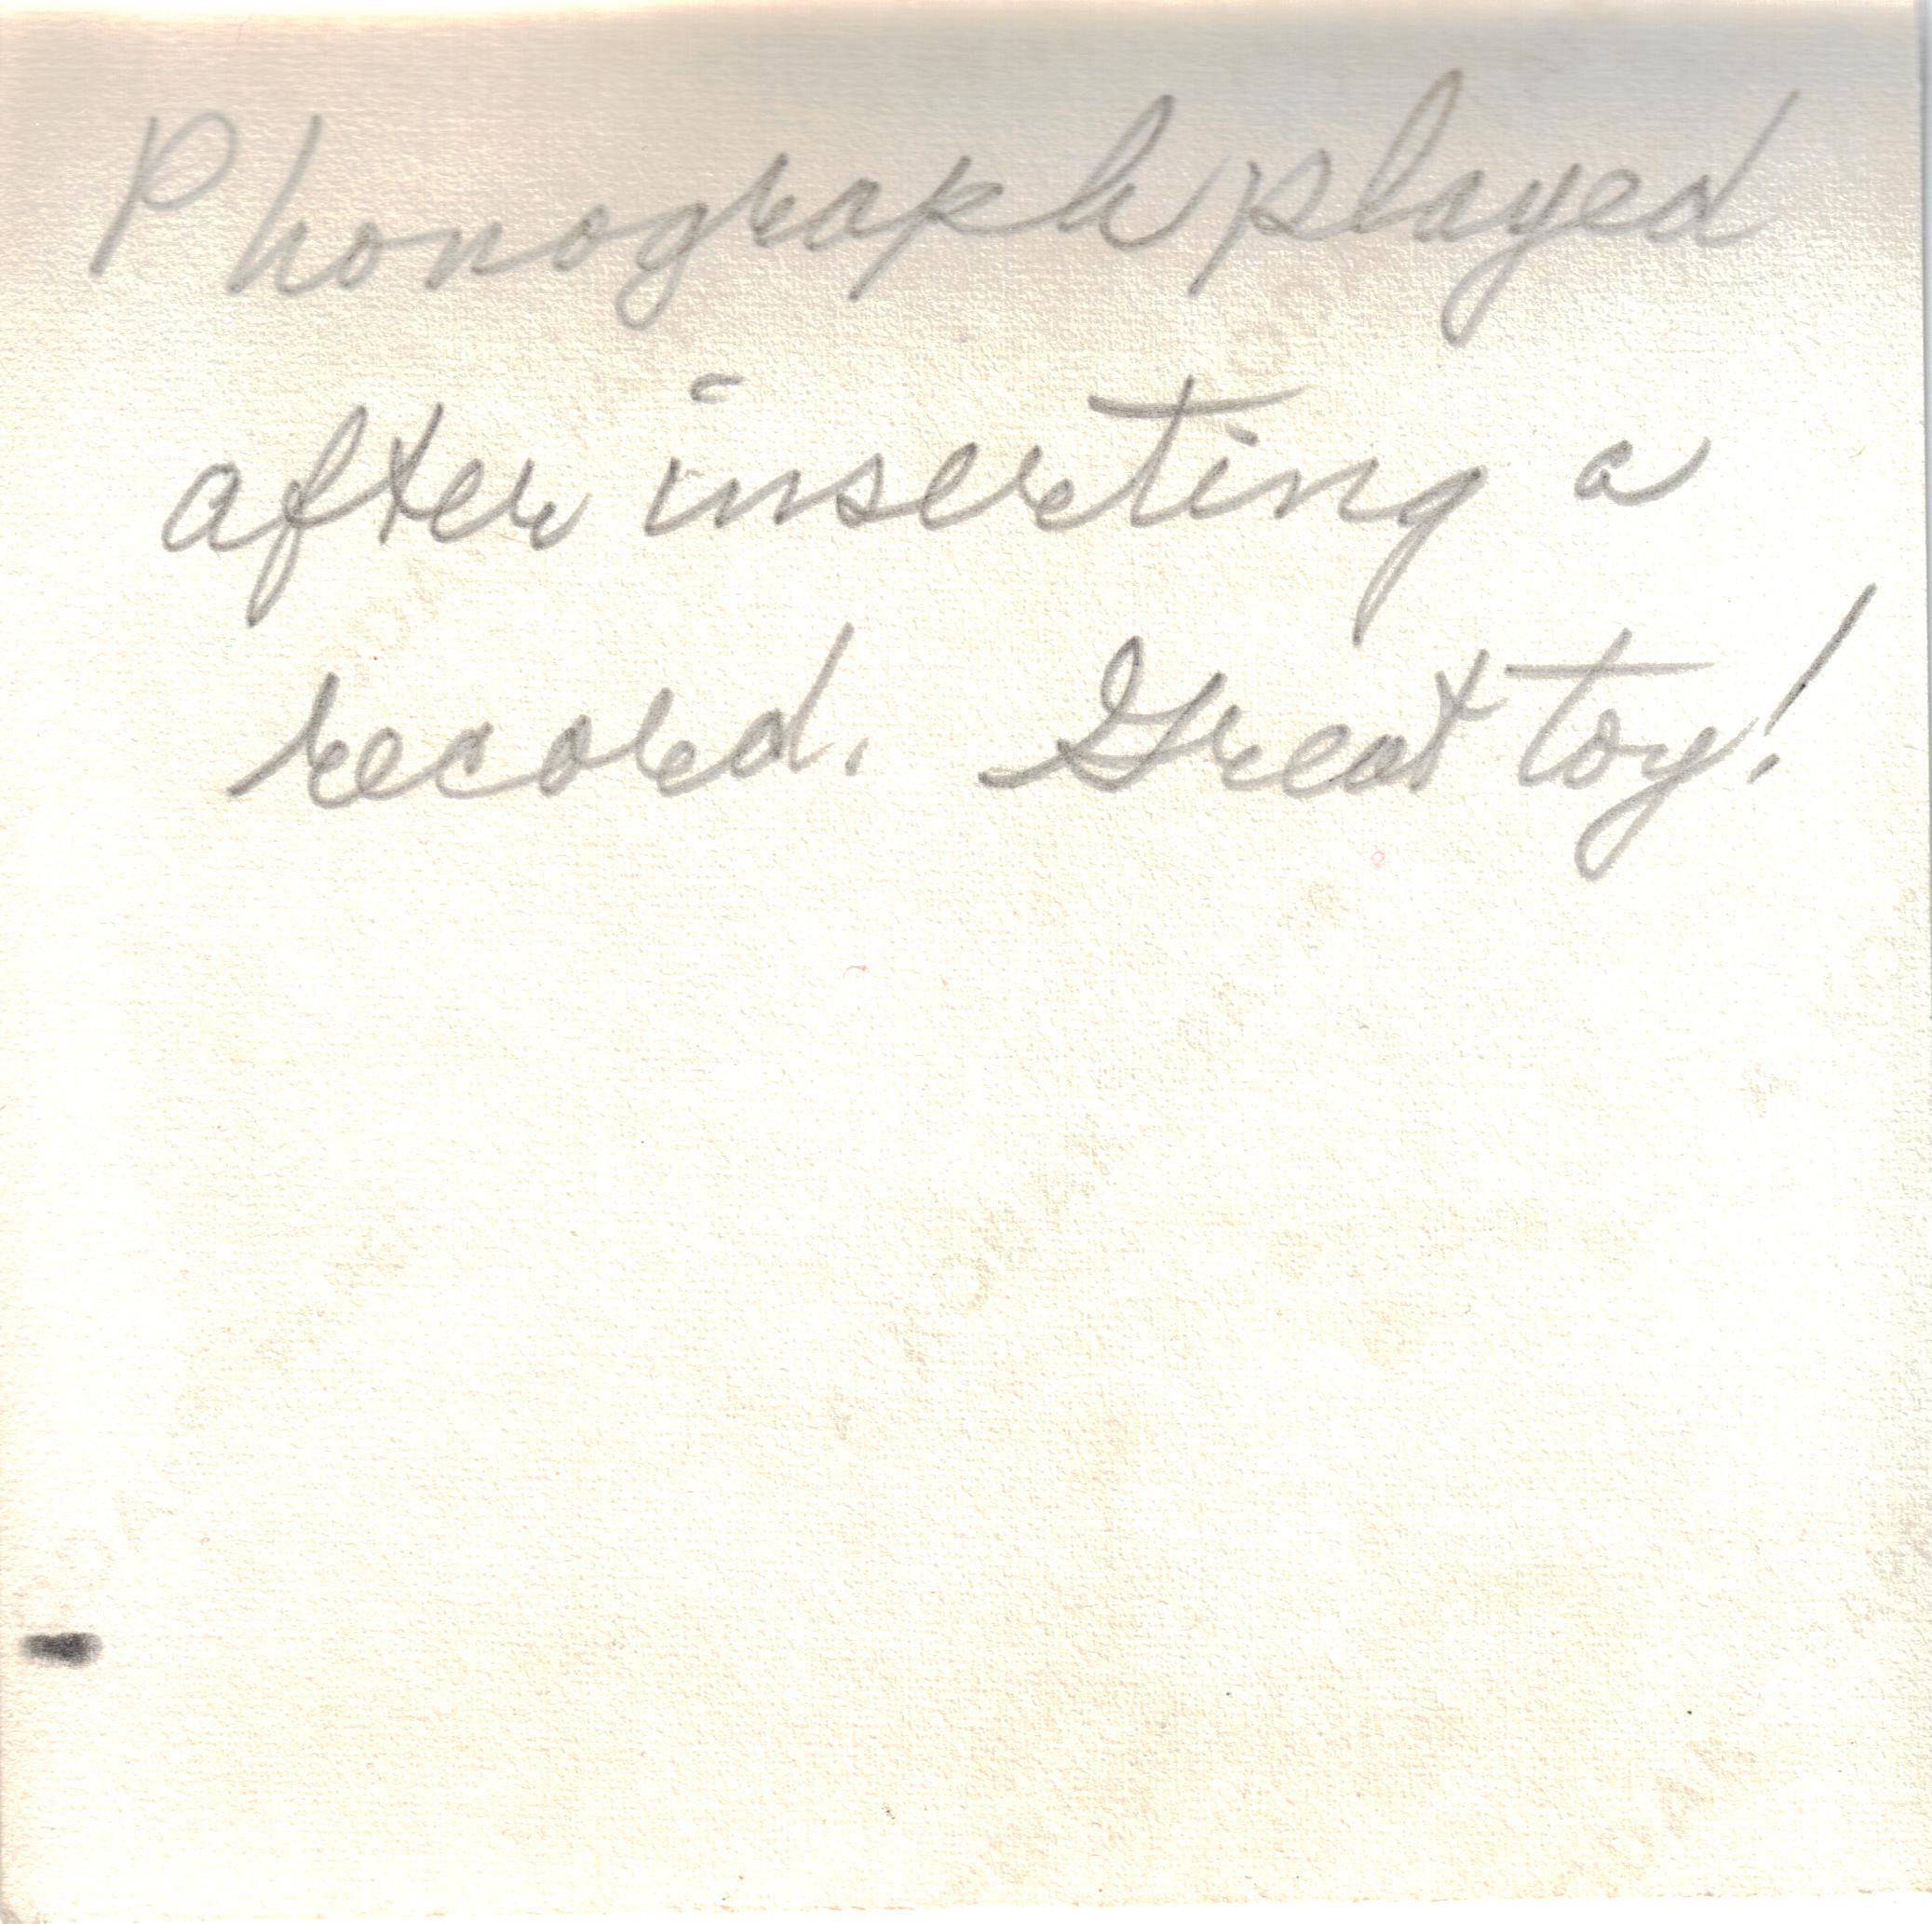 Phonograph played
after inserting a
record. Great toy!